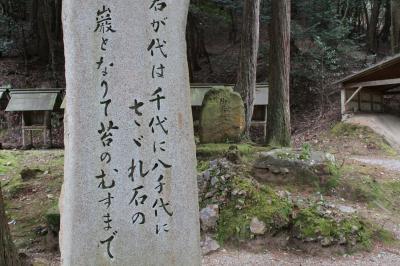 君が代は千代に八千代に
さゞれ石の
巌となりて苔のむすまで